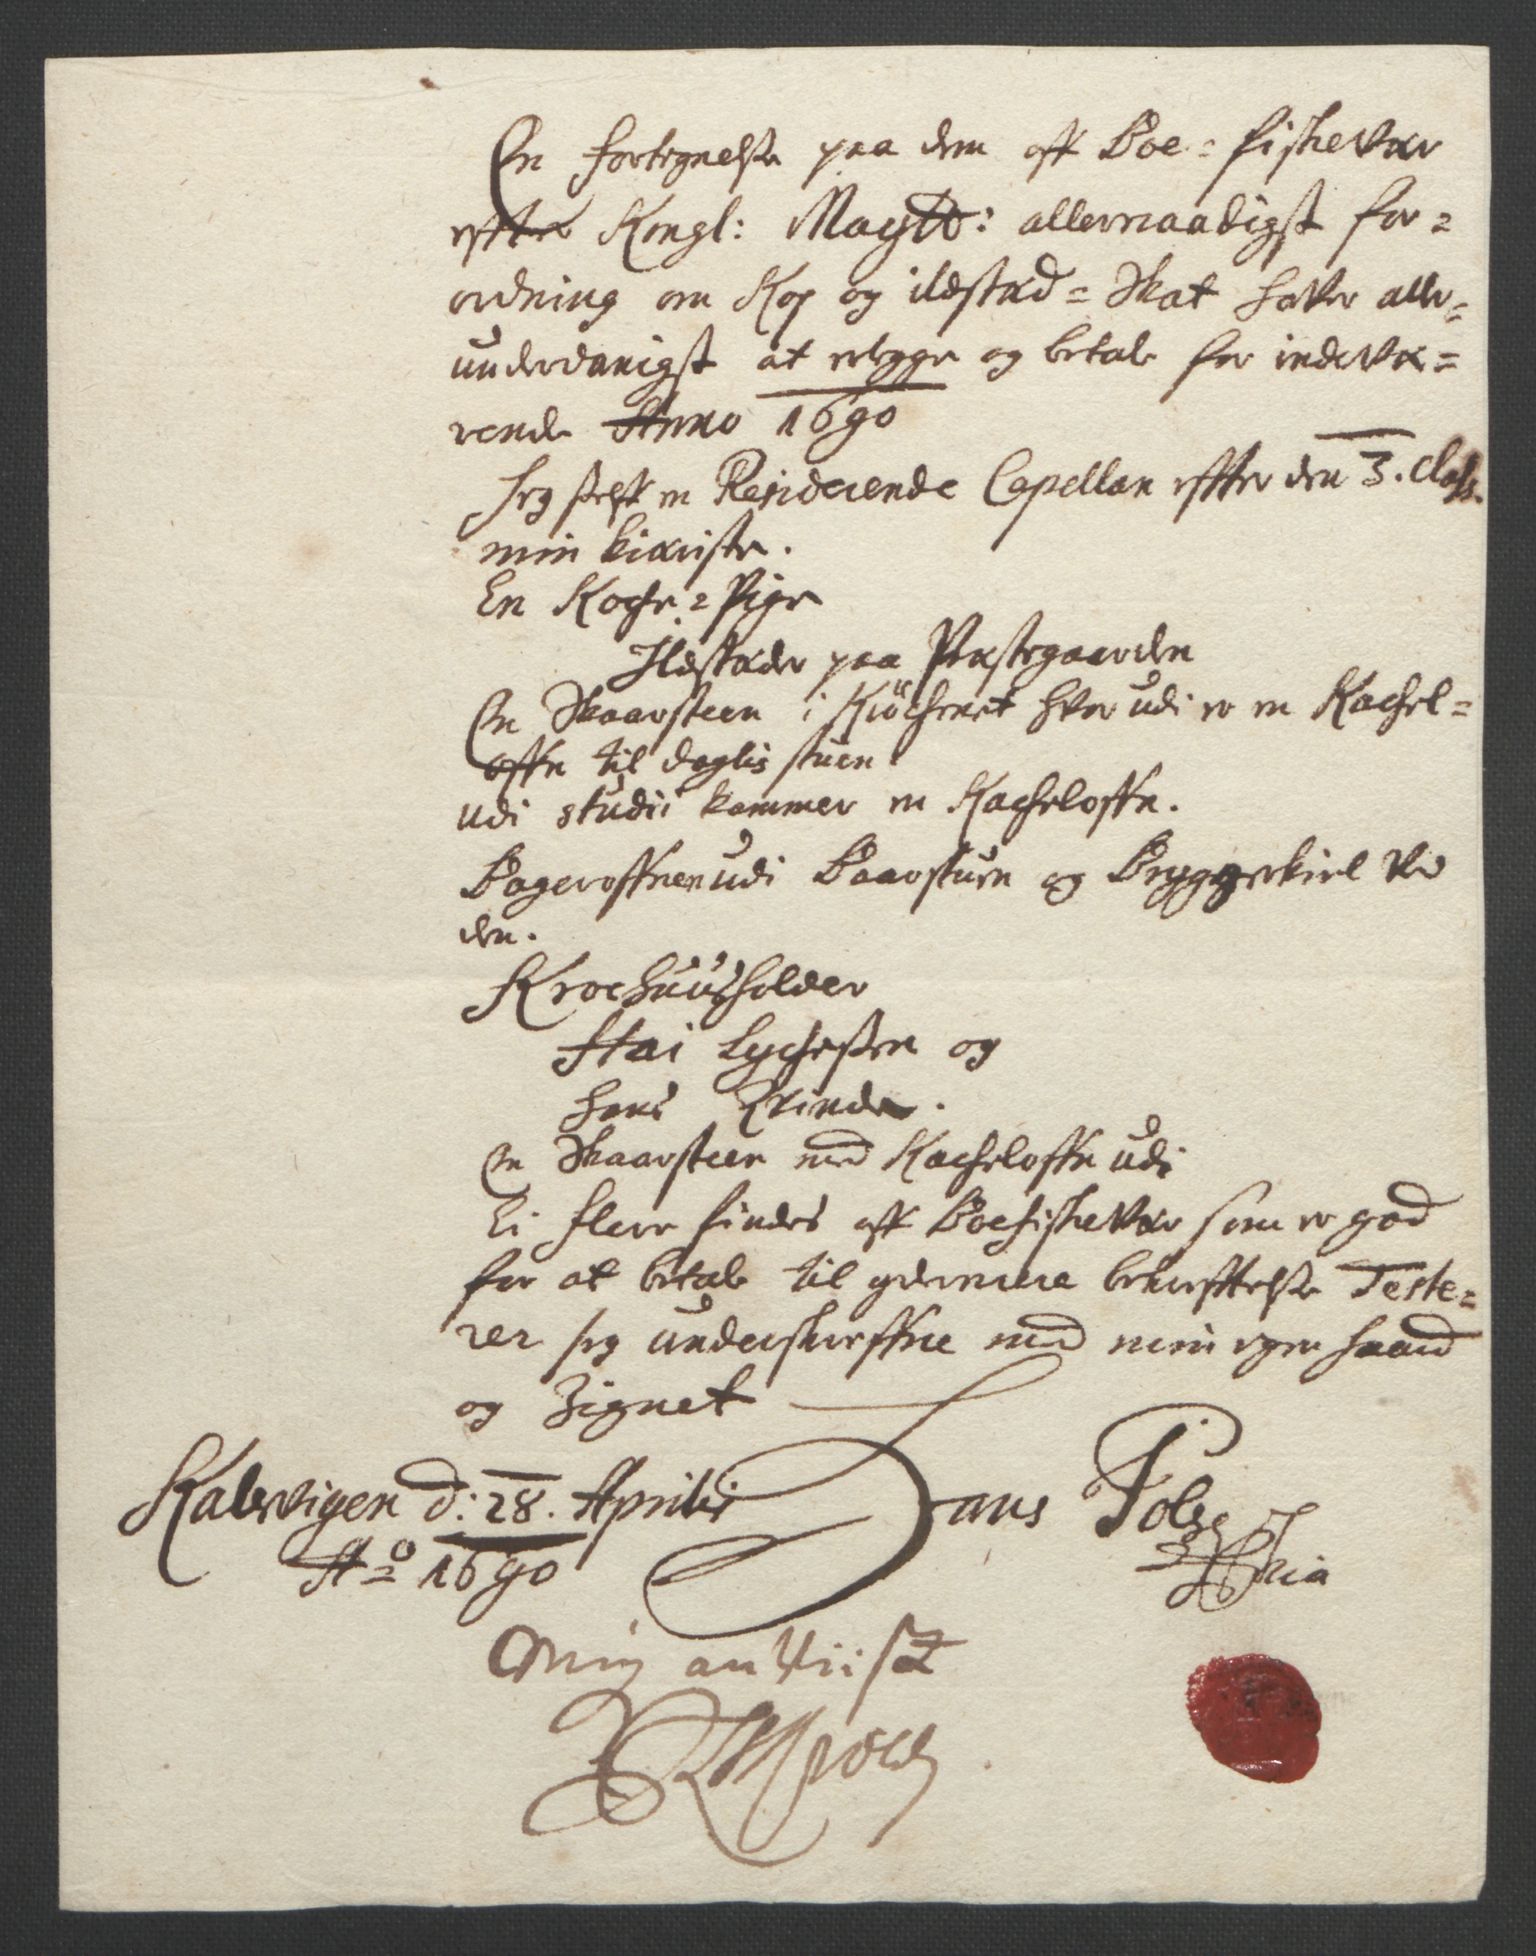 En fortegnelse paa dem aff Boe = fischeVær
efter Kongl: Maÿtt: allernaadigst for=
ordning om Kop og ildstæd = Skat haVer aller=
underdanigst at erlegge og betale for indeVæ=
rende Anno 1690
Jeg selff en Residerende Capellan effter den 3. Class.
min kiæriste.
En Koche = Pige
Ildstæder paa Præstegaarden
En Skaarsteen i Kiöchenet hVor udi er en Kachel=
offn til daglis stuen
udi studii kammer en Kacheloffn.
Bageroffnen udi Baarstuen og Bryggerkiel Ve
den.
Kroehuusholder
Stai Lychesen og
hans QVinde.
En Skaarsteen med Kacheloffn udi
Ei flere findes aff BoefischeVær som er god
for at betale til ydermere bekrefftelse Teste=
rer jeg underskreffne med min egen haand
og Zignet
Kalsvigen d: 28. Aprilis Hans
Ao 1690
Mig anViist